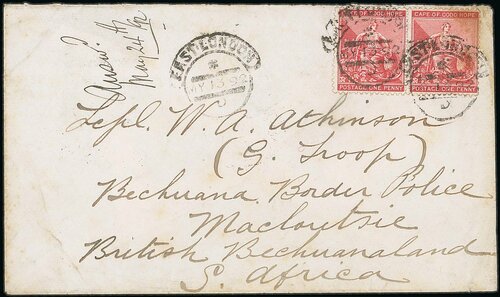 Answd
May 24th/92
EAST LONDON
MY 13 92
CAPE OF GOOD HOPE
POSTAGE ONE PENNY
CAPE OF GOOD HOPE
POSTAGE ONE PENNY
W. A. Atkinson
(G. Troop)
Bechuana Border Police
Macloutsie
British Bechuanaland
S. Africa